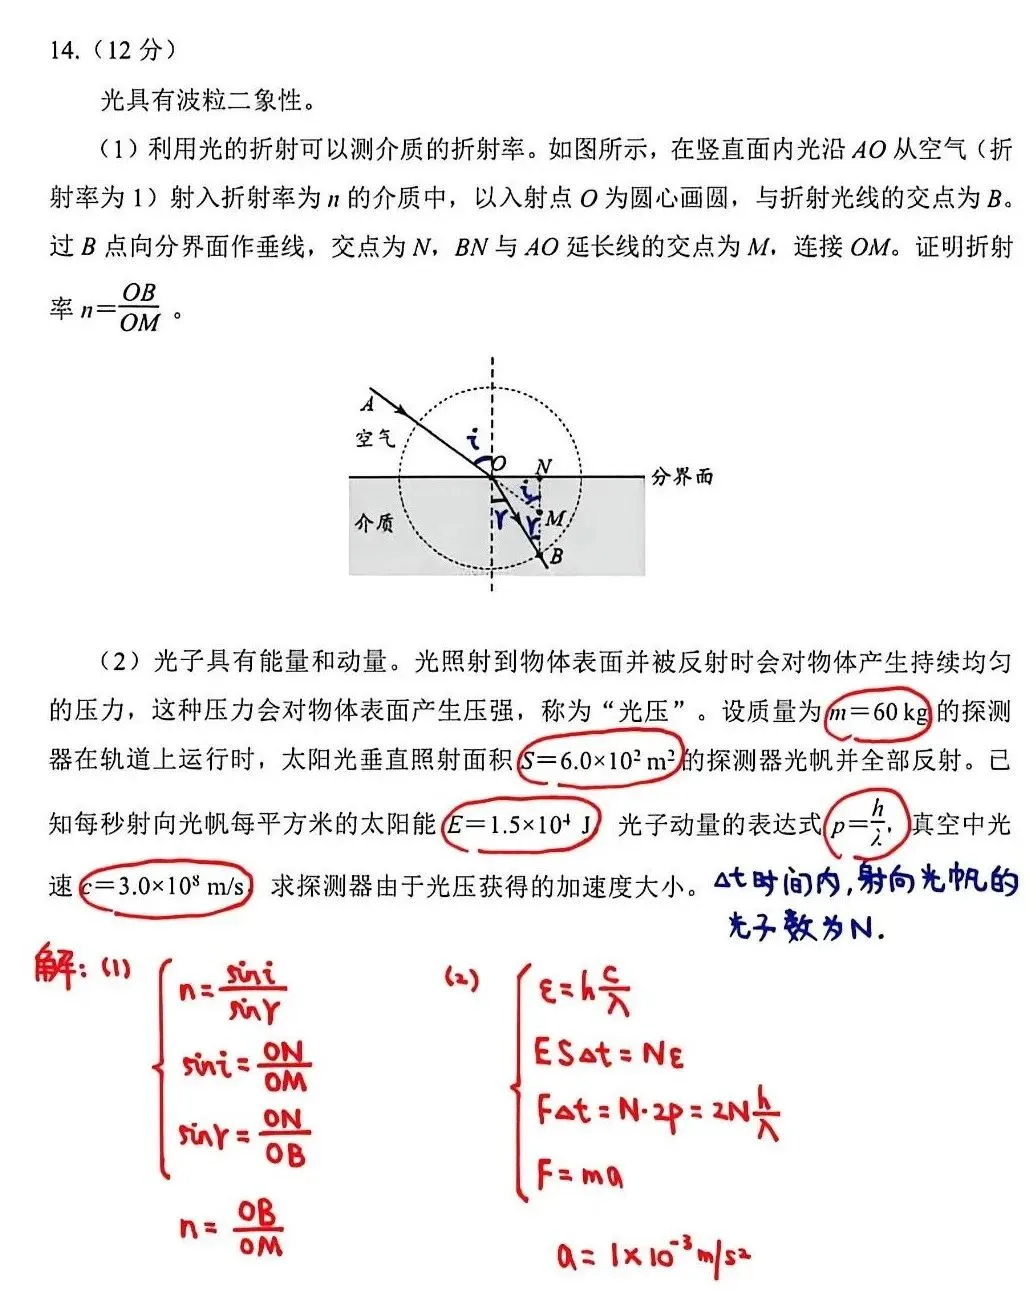 14.（12 分）
光具有波粒二象性。
（1）利用光的折射可以测介质的折射率。如图所示，在竖直面内光沿 AO 从空气（折
射率为 1）射入折射率为 n 的介质中，以入射点 O 为圆心画圆，与折射光线的交点为 B。
过 B 点向分界面作垂线，交点为 N，BN 与 AO 延长线的交点为 M，连接 OM。证明折射
率 n=OB/OM 。
A
空气
i
O
N
分界面
i
介质
r
r
M
B
（2）光子具有能量和动量。光照射到物体表面并被反射时会对物体产生持续均匀
的压力，这种压力会对物体表面产生压强，称为“光压”。设质量为 m=60 kg 的探测
器在轨道上运行时，太阳光垂直照射面积 S=6.0×10² m² 的探测器光帆并全部反射。已
知每秒射向光帆每平方米的太阳能 E=1.5×10⁴ J，光子动量的表达式 p=h/λ，真空中光
速 c=3.0×10⁸ m/s，求探测器由于光压获得的加速度大小。
Δt时间内,射向光帆的
光子数为N.
解：(1)
n=sini/sinr
sini=ON/OM
sinr=ON/OB
n=OB/OM
(2)
ε=hc/λ
ESΔt=Nε
FΔt=N·2p=2Nh/λ
F=ma
a=1×10⁻³m/s²